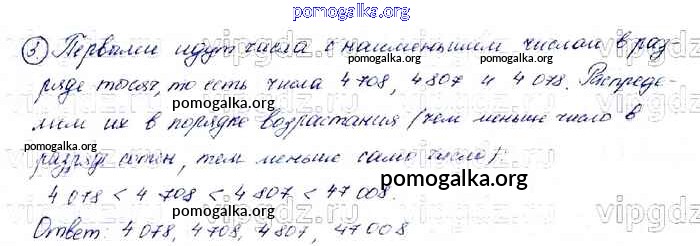 pomogalka.org
3) Первыми идут числа с наименьшим числом в раз
ряде тысяч, то есть числа 4 708, 4 807 и 4 078. Распреде-
pomogalka.org pomogalka.org
лим их в порядке возрастания (чем меньше число в
pomogalka.org
разряде сотен, тем меньше само число):
4 078 < 4 708 < 4 807 < 47 008.
pomogalka.org pomogalka.org
Ответ: 4 078, 4 708, 4 807, 47 008